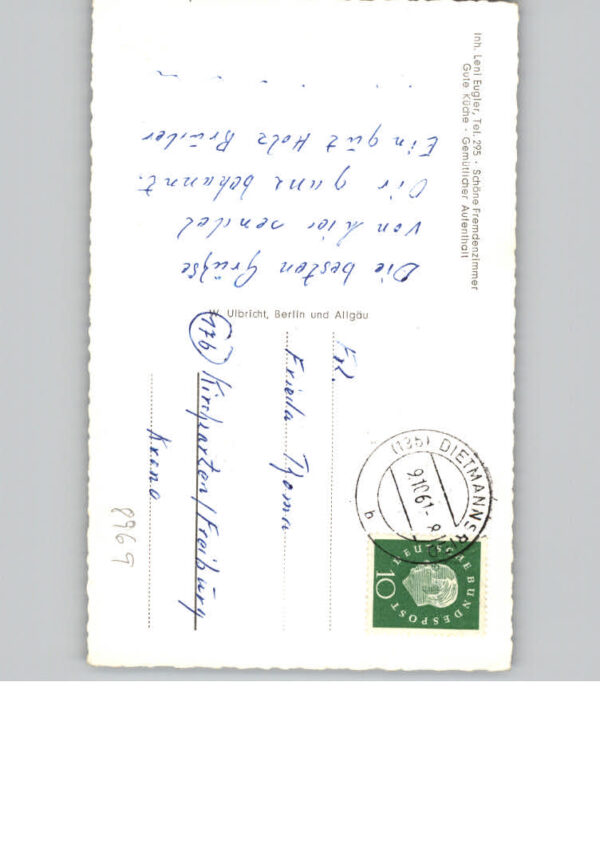 Inh. Leni Eugler, Tel. 295 · Schöne Fremdenzimmer
Gute Küche · Gemütlicher Aufenthalt
Die besten Grüsse
von hier sendet
Dir ganz bekannt.
Ein gut Holz Brüder
W. Ulbricht, Berlin und Allgäu
Frl.
Frieda Thoma
(17b) Kirchzarten/Freiburg
Krone
(13b) DIETMANNSRIED
9.10.61
b
DEUTSCHE BUNDESPOST
10
8969